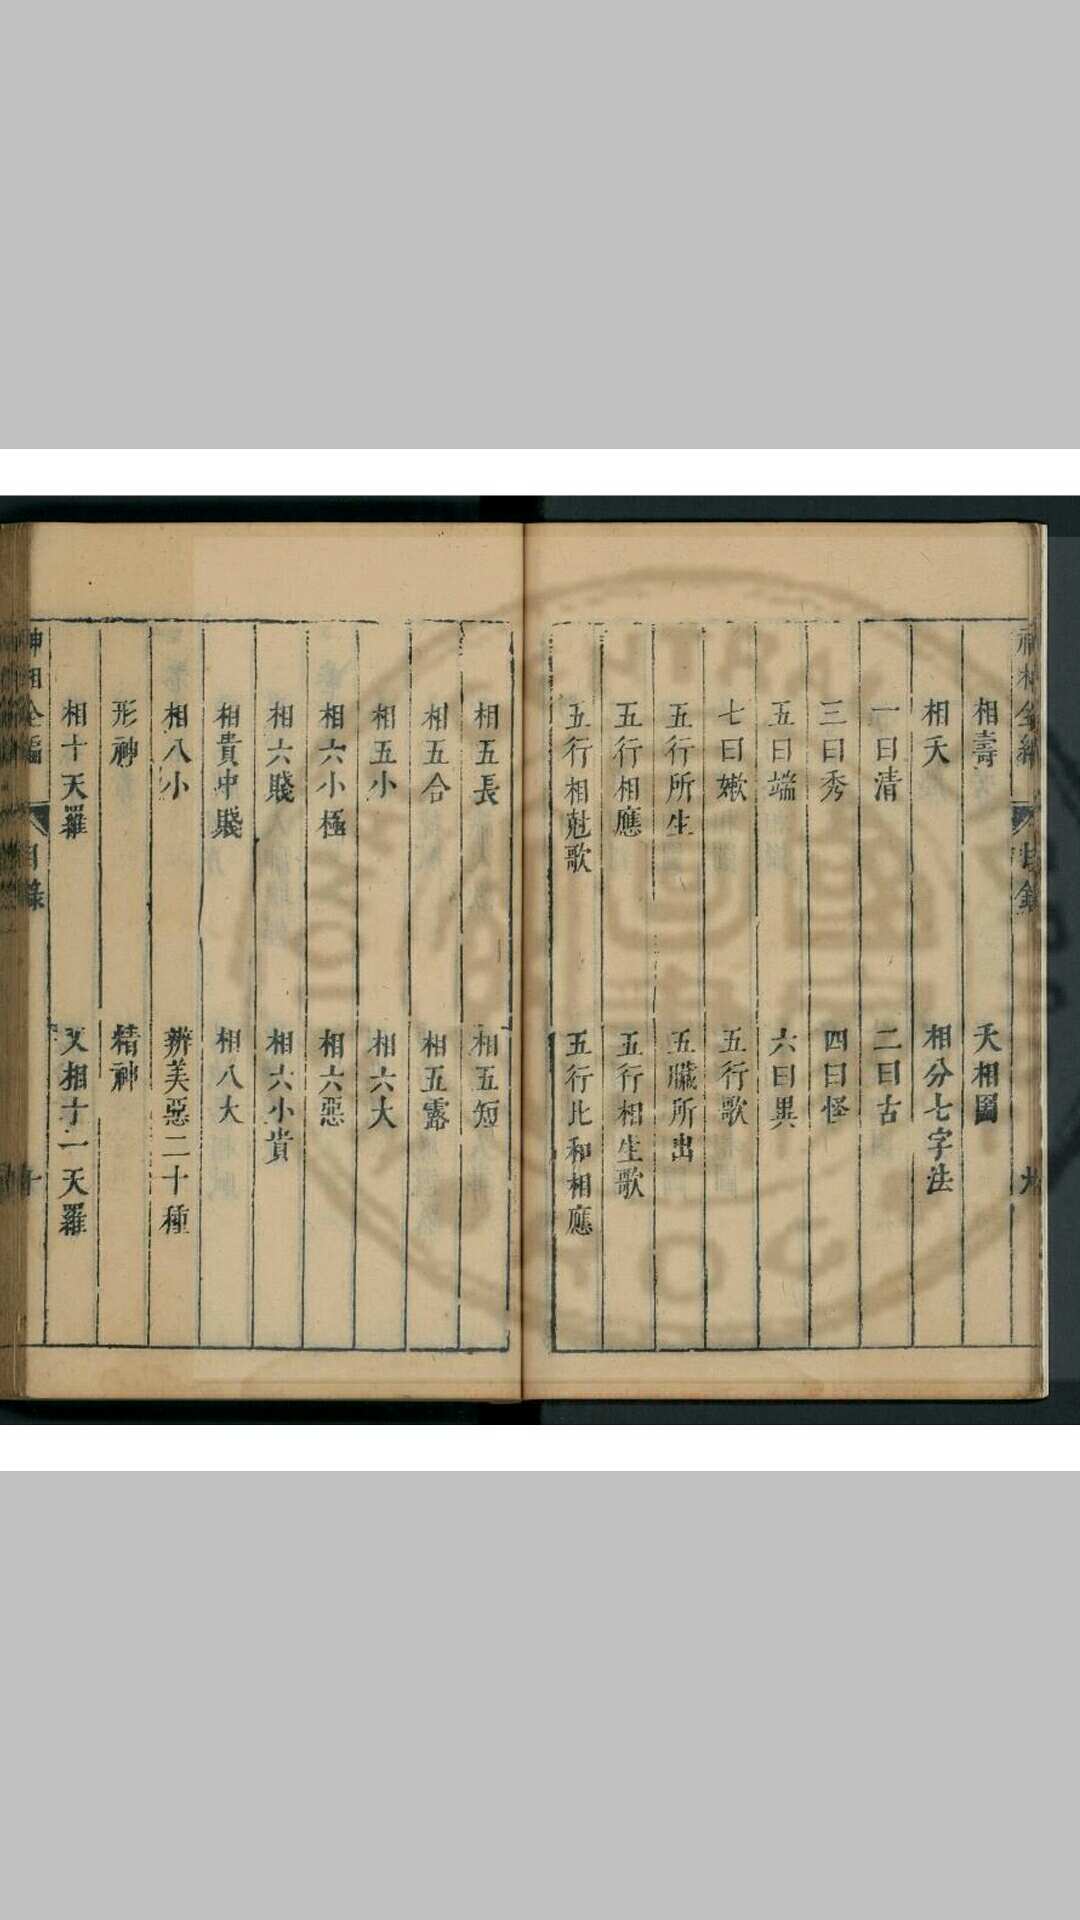 相壽 夭相圖
相夭 相分七字法
一曰清 二曰古
三曰秀 四曰怪
五曰端 六曰異
七曰嫩 五行歌
五行所生 五臟所出
五行相應 五行相生歌
五行相尅歌 五行比和相應
相五長 相五短
相五合 相五露
相五小 相六大
相六小極 相六惡
相六賤 相六小貴
相貴中賤 相八大
相八小 辨美惡二十種
形神 精神
相十天羅 又相十一天羅
神相全編 目錄 十